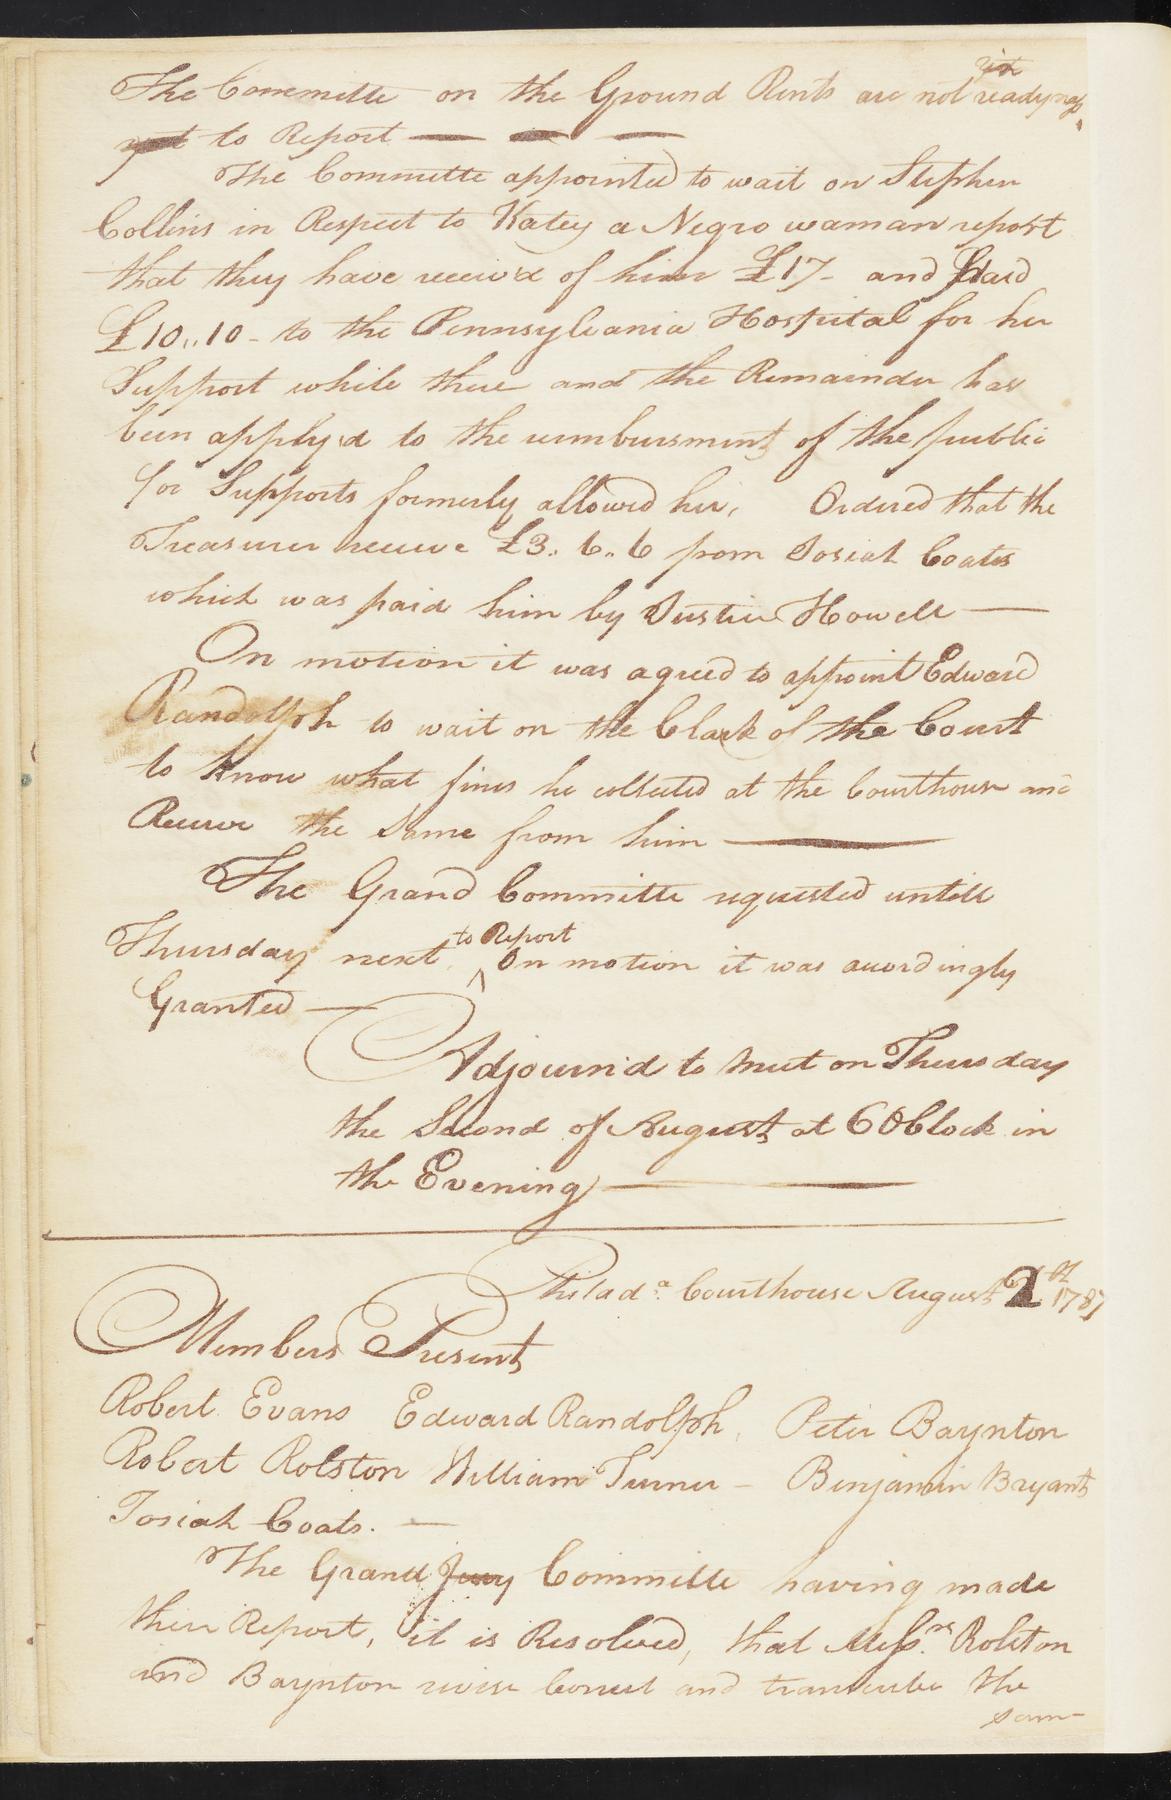 The Committe on the Ground Rents are not ready
yet to Report
The Committe appointed to wait on Stephen
Collins in Respect to Katey a Negro waman report
that they have receiv'd of him £17- and paid
£10,,10- to the Pennsylvania Hospital for her
Support while there and the Remainder has
been apply'd to the reimbursment of the public
for Supports formerly allowed her, Ordered that the
Treasurer receive £3,, 6,, 6 from Josiah Coates
which was paid him by Justice Howell
On motion it was agreed to appoint Edward
Randolph to wait on the Clark of the Court
to Know what fines he collected at the Courthouse and
Receive the Same from him
The Grand Committe requested untill
to Report
Thursday next On motion it was accordingly
Granted
Adjourn'd to meet on Thursday
the Second of August at 6 OClock in
the Evening
Philada. Courthouse August 2d 1787
Members Present
Robert Evans Edward Randolph, Peter Baynton
Robert Rolston William Turner - Benjamin Bryant
Josiah Coats.
The Grand Jury Committe having made
their Report, it is Resolved, that Messrs. Rolston
and Baynton revise Correct and transcribe the
same